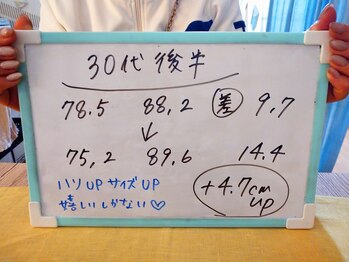 30代後半
78.5 88,2 差 9.7
↓
75,2 89.6 14.4
ハリUPサイズUP
嬉しいしかない♡
+4.7cm
up